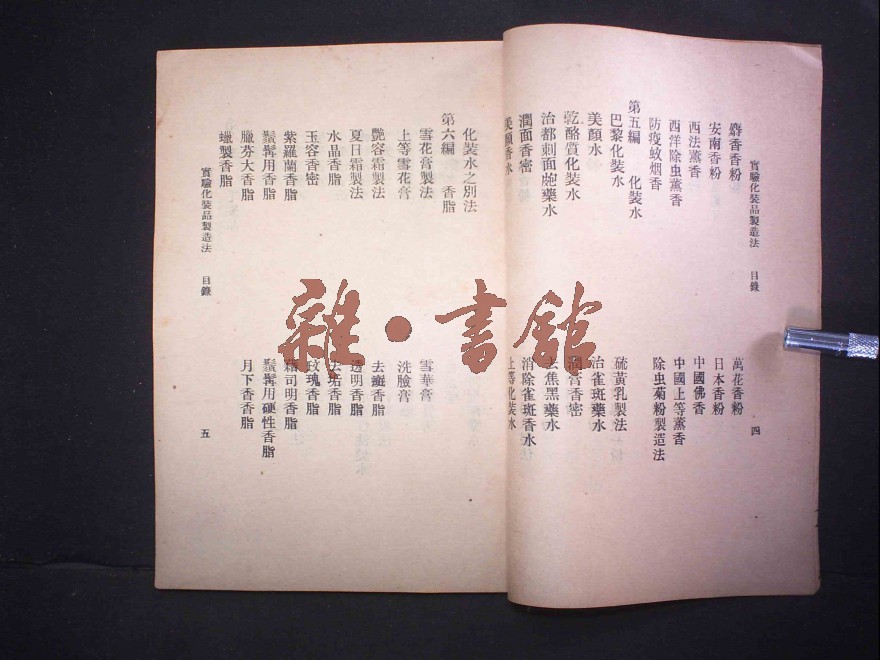 實驗化裝品製造法 目錄 四
麝香香粉 萬花香粉
安南香粉 日本香粉
西法薰香 中國佛香
西洋除虫薰香 中國上等薰香
防疫蚊烟香 除虫菊粉製造法
第五編 化裝水
巴黎化裝水 硫黃乳製法
美顏水 治雀斑藥水
乾酪質化裝水 潤膏香密
治都刺面皰藥水 去焦黑藥水
潤面香密 消除雀斑香水
美顏香水 上等化裝水
化裝水之別法
第六編 香脂
雪花膏製法 雪華膏
上等雪花膏 洗臉膏
艷容霜製法 去瘢香脂
夏日霜製法 透明香脂
水晶香脂 去垢香脂
玉容香密 玫瑰香脂
紫羅蘭香脂 司明香脂
鬚髯用香脂 鬚髯用硬性香脂
臘芬大香脂 月下香香脂
蠟製香脂
實驗化裝品製造法 目錄 五
雜·書館